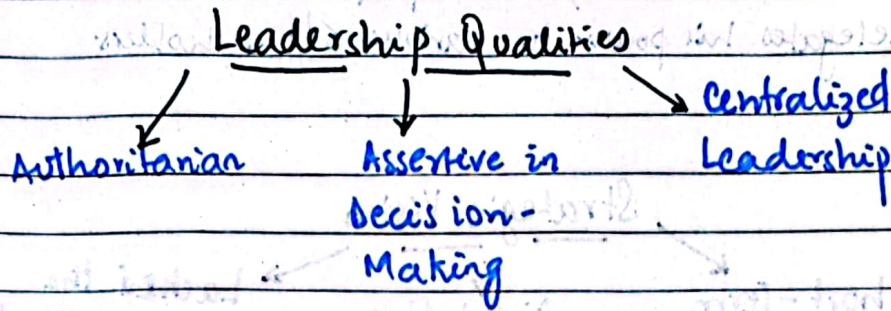 Leadership Qualities
Authoritarian
Assertive in
Decision-
Making
Centralized
Leadership